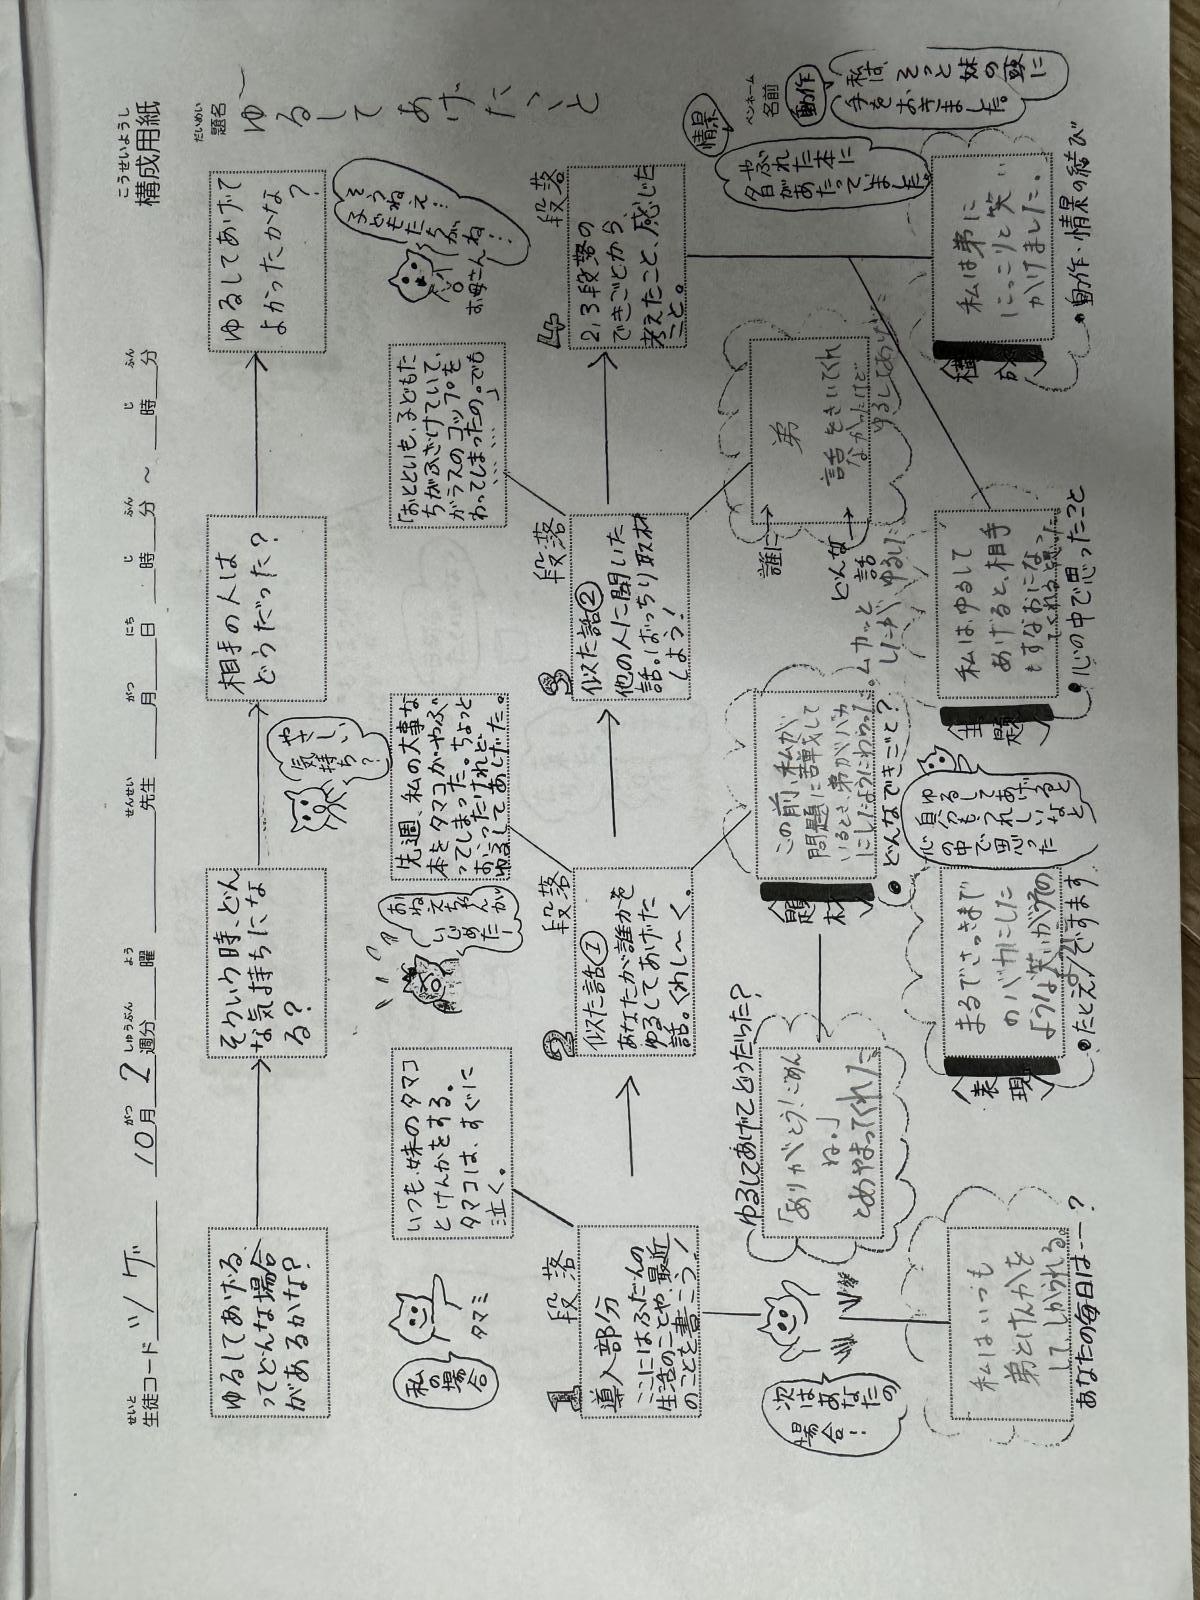 こうせいようし
構成用紙
せいと
生徒コード ツゲ
がつ しゅうぶん よう
10月 2 週分 曜
せんせい
先生
がつ にち じ ふん じ ふん
月 日 時 分 ~ 時 分
だいめい
題名
ゆるしてあげたこと
ペンネーム
名前
ゆるしてあげる
ってどんな場合
があるかな?
そういう時、どん
な気持ちにな
る?
相手の人は
どうだった?
ゆるしてあげて
よかったかな
?
私の
場合
タマミ
いつも、妹のタマコ
とけんかをする。
タマコは、すぐに
泣く。
おね
えちゃんが
いじめたー
やさしい
気持ち?
先週、私の大事な
本をタマコがやぶ
ってしまった。ちょっと
おこったけれど、
ゆるしてあげた。
「おとといも、子どもた
ちがふざけていて、
ガラスのコップを
わってしまったの。でも
……」
そうねえ…
子どもたちがね…
お母さん
段落
1
導入部分
ここにはふだんの
生活のことや、最近
のことを書こう!
段落
2
似た話①
あなたが誰かを
ゆるしてあげた
話。くわし〜く。
段落
3
似た話②
他の人に聞いた
話。ばっちり取材
しよう!
段落
4
2,3段落の
できごとから、
考えたこと、感じた
こと。
次は
あなたの
場合!
ゆるしてあげてどうだった?
「ありがとう!ごめん
ね。」
とあやまってくれた
題材
この前、私が
問題に苦戦して
いるとき、弟がバカ
にしたようにわらった。ムカッと
したが ゆるした
●どんなできごと?
誰に→
弟
どんな話→
話をきいてくれ
なかったけど
情景
やぶれた本に
夕日が
あたっていました。
動作
私は、そっと妹の頭に
手をおきました。
私はいつも
弟とけんかを
して、しかられる。
あなたの毎日は…?
表現
まるでさっきまで
のバカにした
ような笑いがうその
●たとえ/ですます
主題
私は、ゆるして
あげると、相手
もすなおになっ
てくれると思った
●心の中で思ったこと
ゆるしてあげると
自分もうれしいなと
心の中で思った
私は弟に
にっこりと笑い
かけました。
●動作・情景の結び